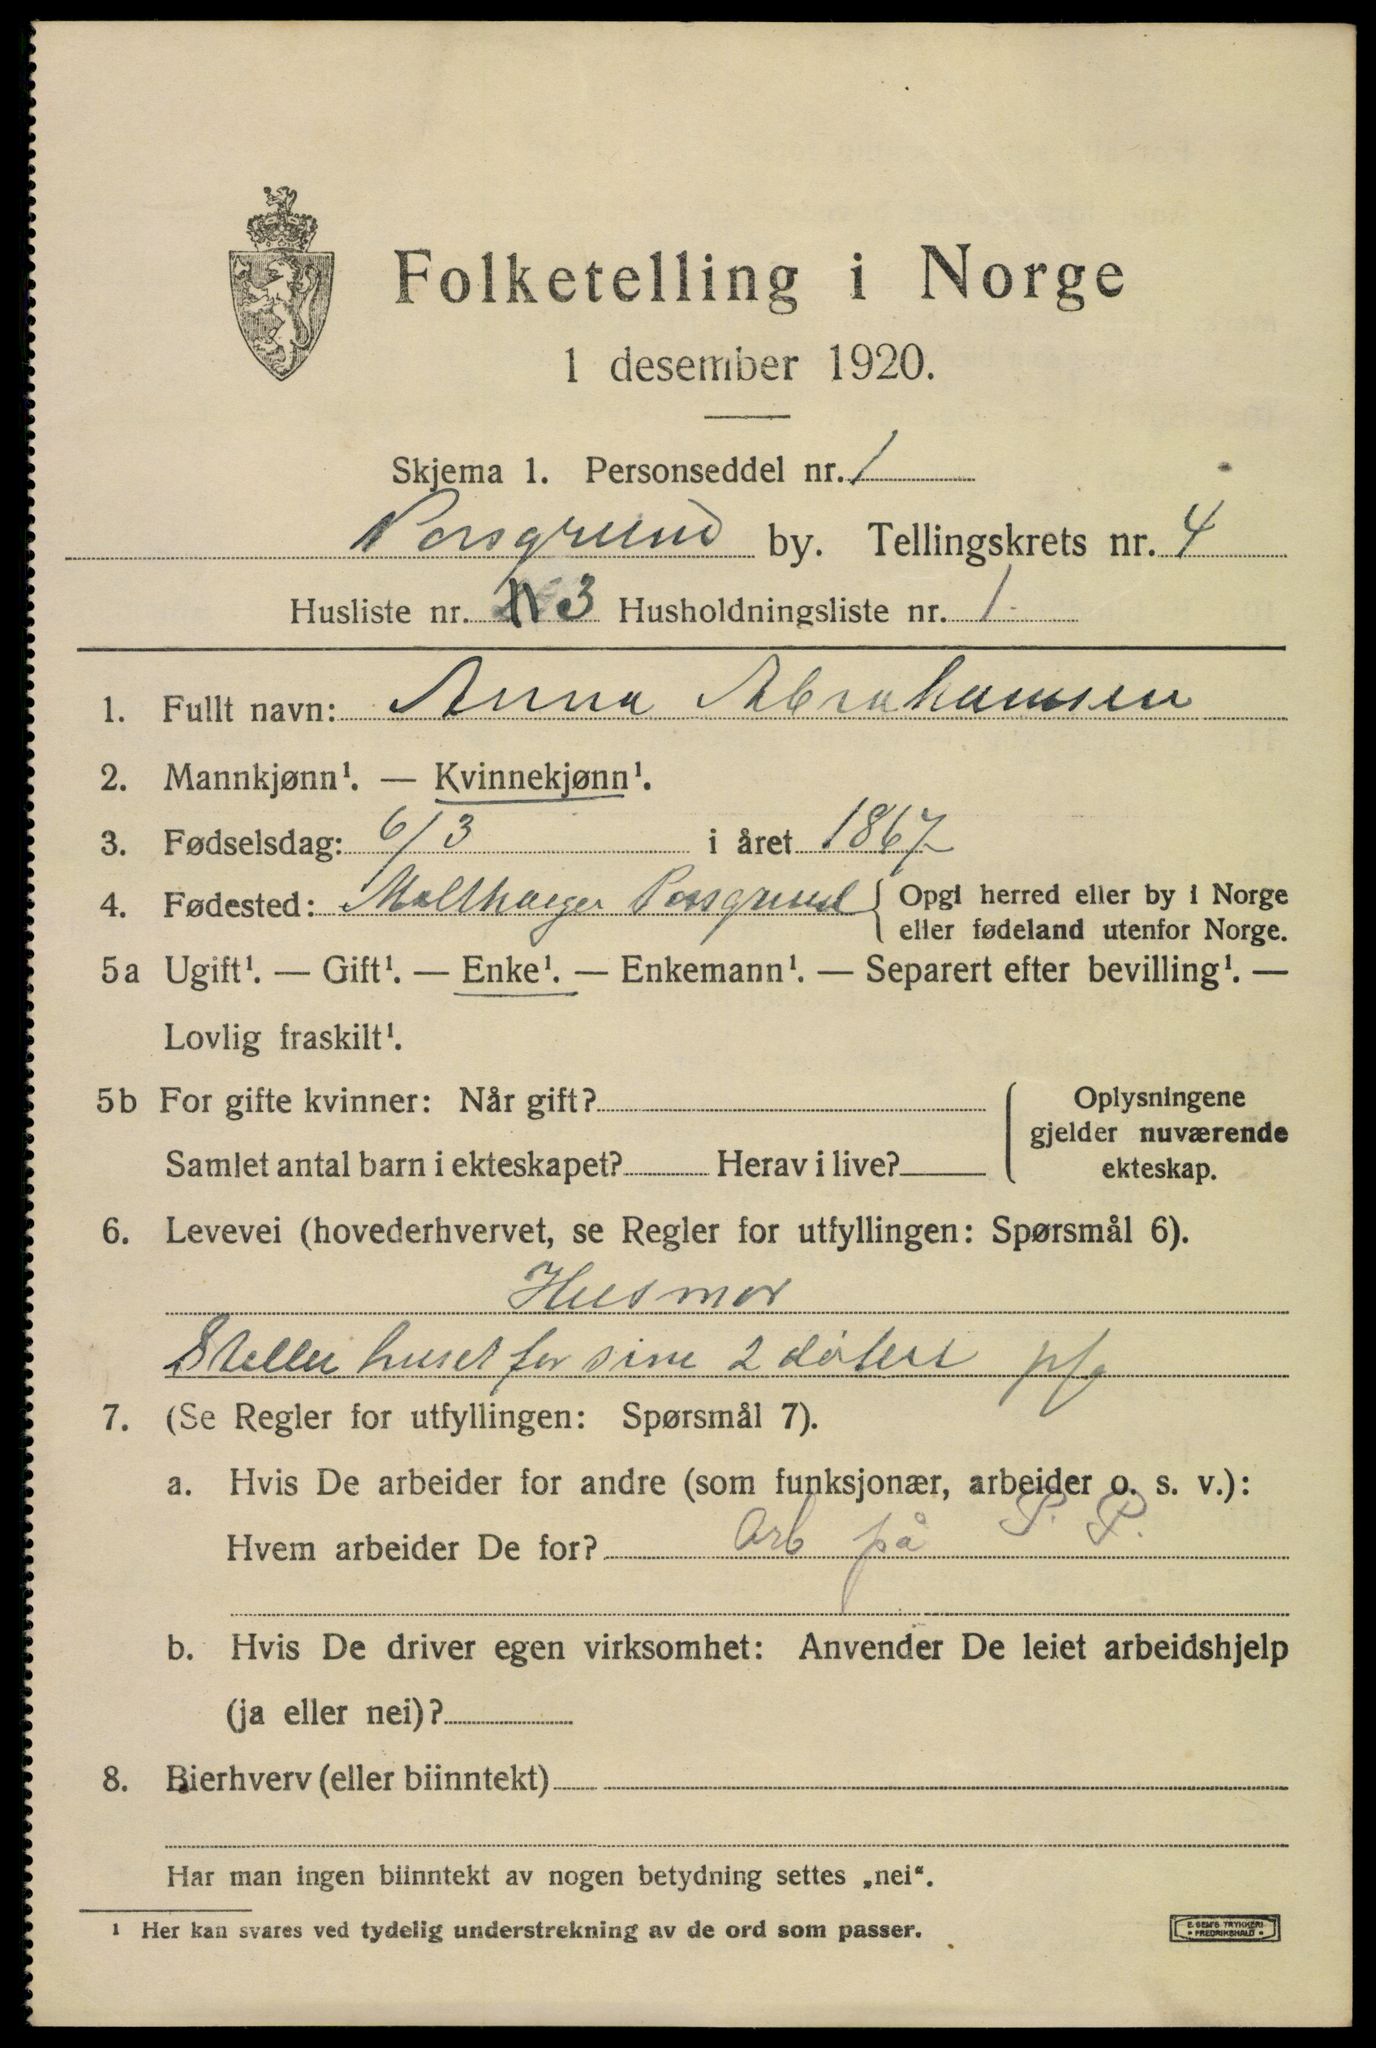 Folketelling i Norge
1 desember 1920.
Skjema 1. Personseddel nr. 1
Porsgrund by. Tellingskrets nr. 4
Husliste nr. 3 Husholdningsliste nr. 1
1. Fullt navn: Anna Abrahamsen
2. Mannkjønn¹. — Kvinnekjønn¹.
3. Fødselsdag: 6/3 i året 1867
4. Fødested: Porsgrund { Opgi herred eller by i Norge
eller fødeland utenfor Norge.
5a Ugift¹. — Gift¹. — Enke¹. — Enkemann¹. — Separert efter bevilling¹. —
Lovlig fraskilt¹.
5b For gifte kvinner: Når gift? Oplysningene
gjelder nuværende
Samlet antal barn i ekteskapet? Herav i live? ekteskap.
6. Levevei (hovederhvervet, se Regler for utfyllingen: Spørsmål 6).
Husmor
Steller huset for sine 2 døtere
7. (Se Regler for utfyllingen: Spørsmål 7).
a. Hvis De arbeider for andre (som funksjonær, arbeider o. s. v.):
Hvem arbeider De for? Arb på P. P.
b. Hvis De driver egen virksomhet: Anvender De leiet arbeidshjelp
(ja eller nei)?
8. Bierhverv (eller biinntekt)
Har man ingen biinntekt av nogen betydning settes „nei“.
¹ Her kan svares ved tydelig understrekning av de ord som passer.
E. SEM'S TRYKKERI
• FREDRIKSHALD •